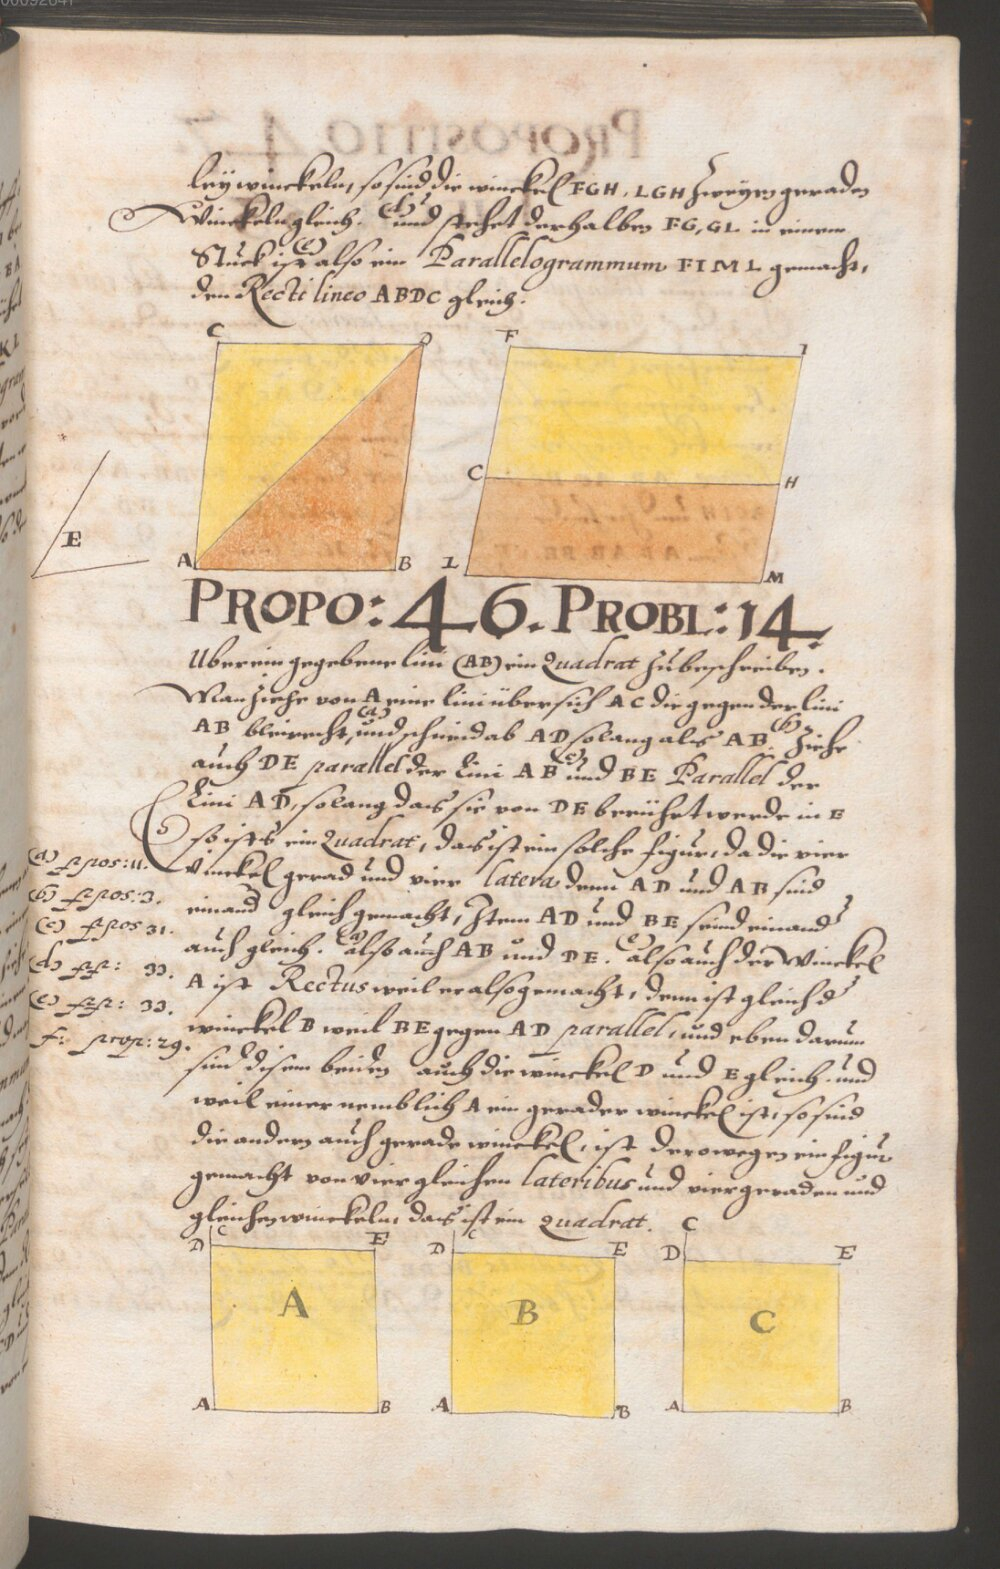 ley winckeln, so sind die winckel FGH, LGH zweyen geraden
Winckeln gleich. (d) und stehet derhalben FG, GL in einem
Stuck ist (e) also ein Parallelogrammum FIML gemacht,
den Rectilineo ABDC gleich.
C D F I
C H
E
A B L M
PROPO: 46. PROBL: 14.
Uber ein gegebene lini (AB) ein Quadrat zu beschreiben.
Man ziehe von A eine lini über sich AC die gegen der lini
AB bleirecht, (a) und schneid ab AD so lang als AB. (b) Ziehe
auch DE parallel der Lini AB (c) und BE Parallel der
Lini AD, so lang das sie von DE berührt werde in E
so ists ein Quadrat, das ist ein solche figur, da die vier
Winckel gerad und vier latera denn AD und AB sind
einand gleich gemacht, Item AD und BE seind einand
auch gleich. (d) also auch AB und DE. (e) also auch der Winckel
A ist Rectus weil er also gemacht, denn ist gleich d
winckel B weil BE gegen AD parallel, und eben darum
sind disem beiden auch die winckel D und E gleich und
weil einer nemblich A ein gerader winckel ist, so sind
die andern auch gerade winckel, ist derowegen ein figur
gemacht von vier gleichen lateribus und vier geraden und
gleichen winckeln, das ist ein quadrat.
(a) ppos: 11.
(b) ppos: 3.
(c) ppos 31.
(d) 33.
(e) 33.
f: prop: 29.
D C E D C E C D E
A B C
A B A B A B